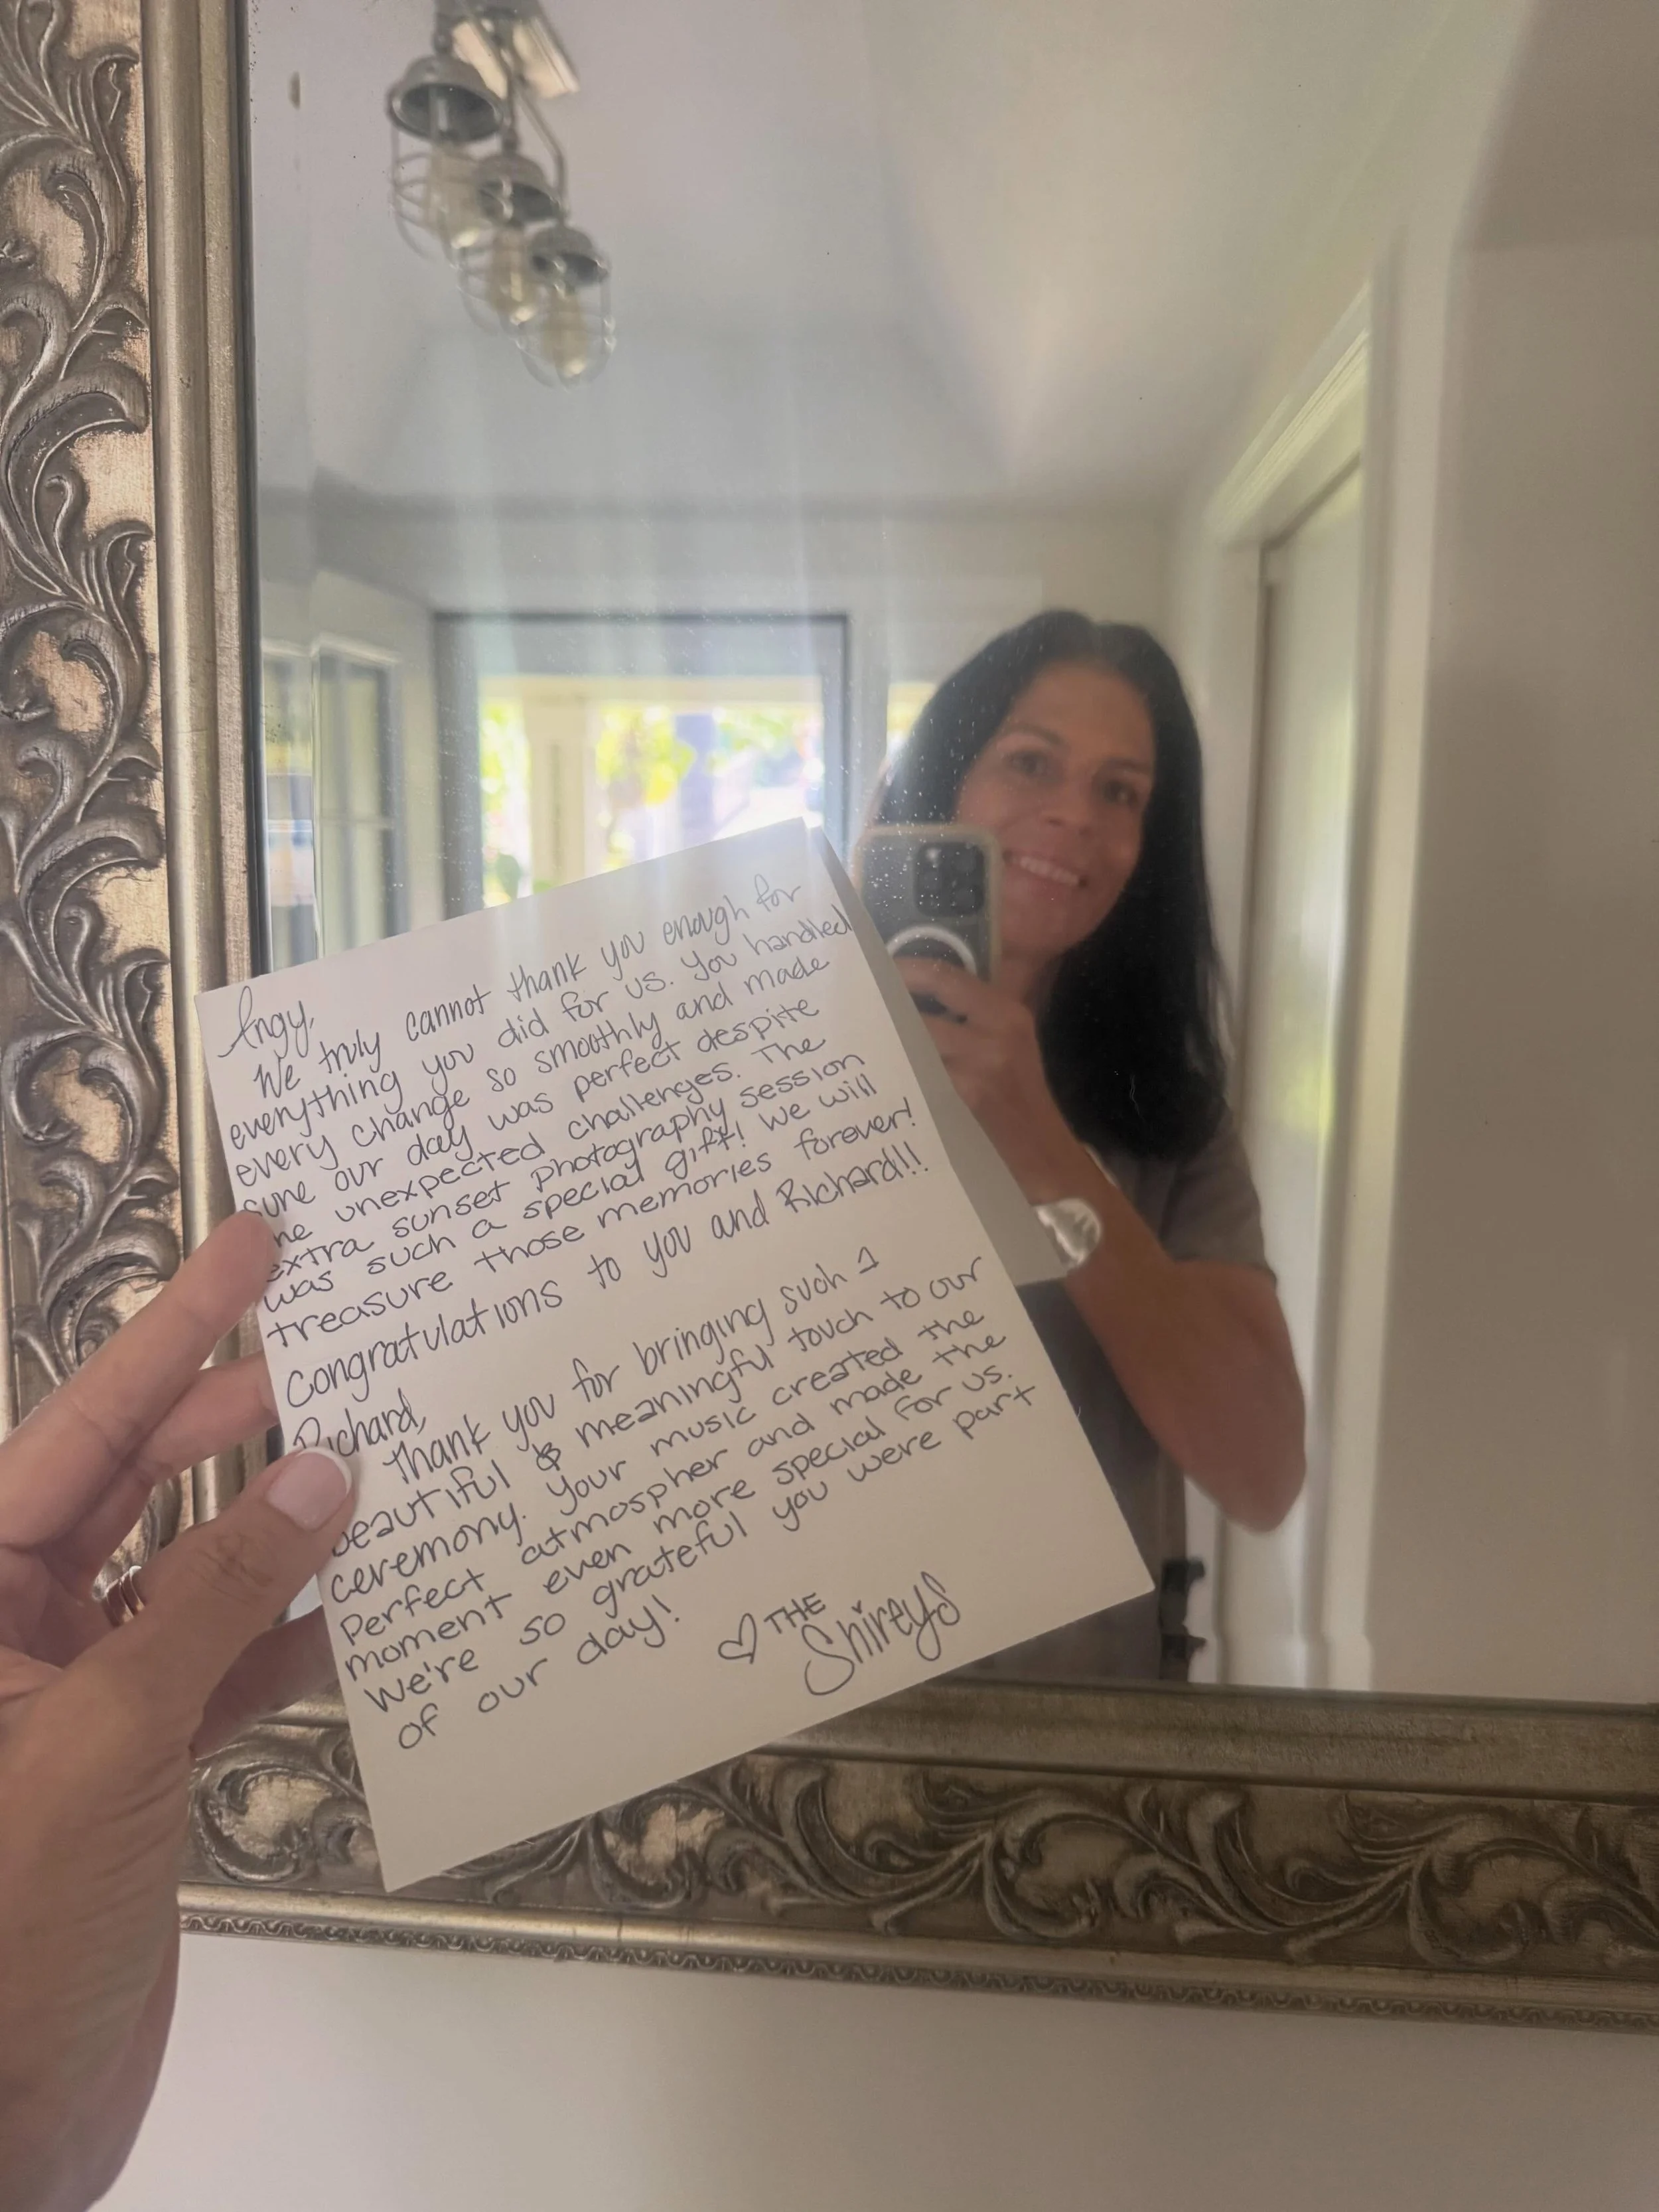 Angy,
We truly cannot thank you enough for
everything you did for us. You handled
every change so smoothly and made
sure our day was perfect despite
he unexpected challenges. The
extra sunset photography session
was such a special gift! We will
treasure those memories forever!
Congratulations to you and Richard!!
Richard,
Thank you for bringing such a
beautiful & meaningful touch to our
ceremony. Your music created the
perfect atmospher and made the
moment even more special for us.
We're so grateful you were part
of our day!
♡ THE
Shireys